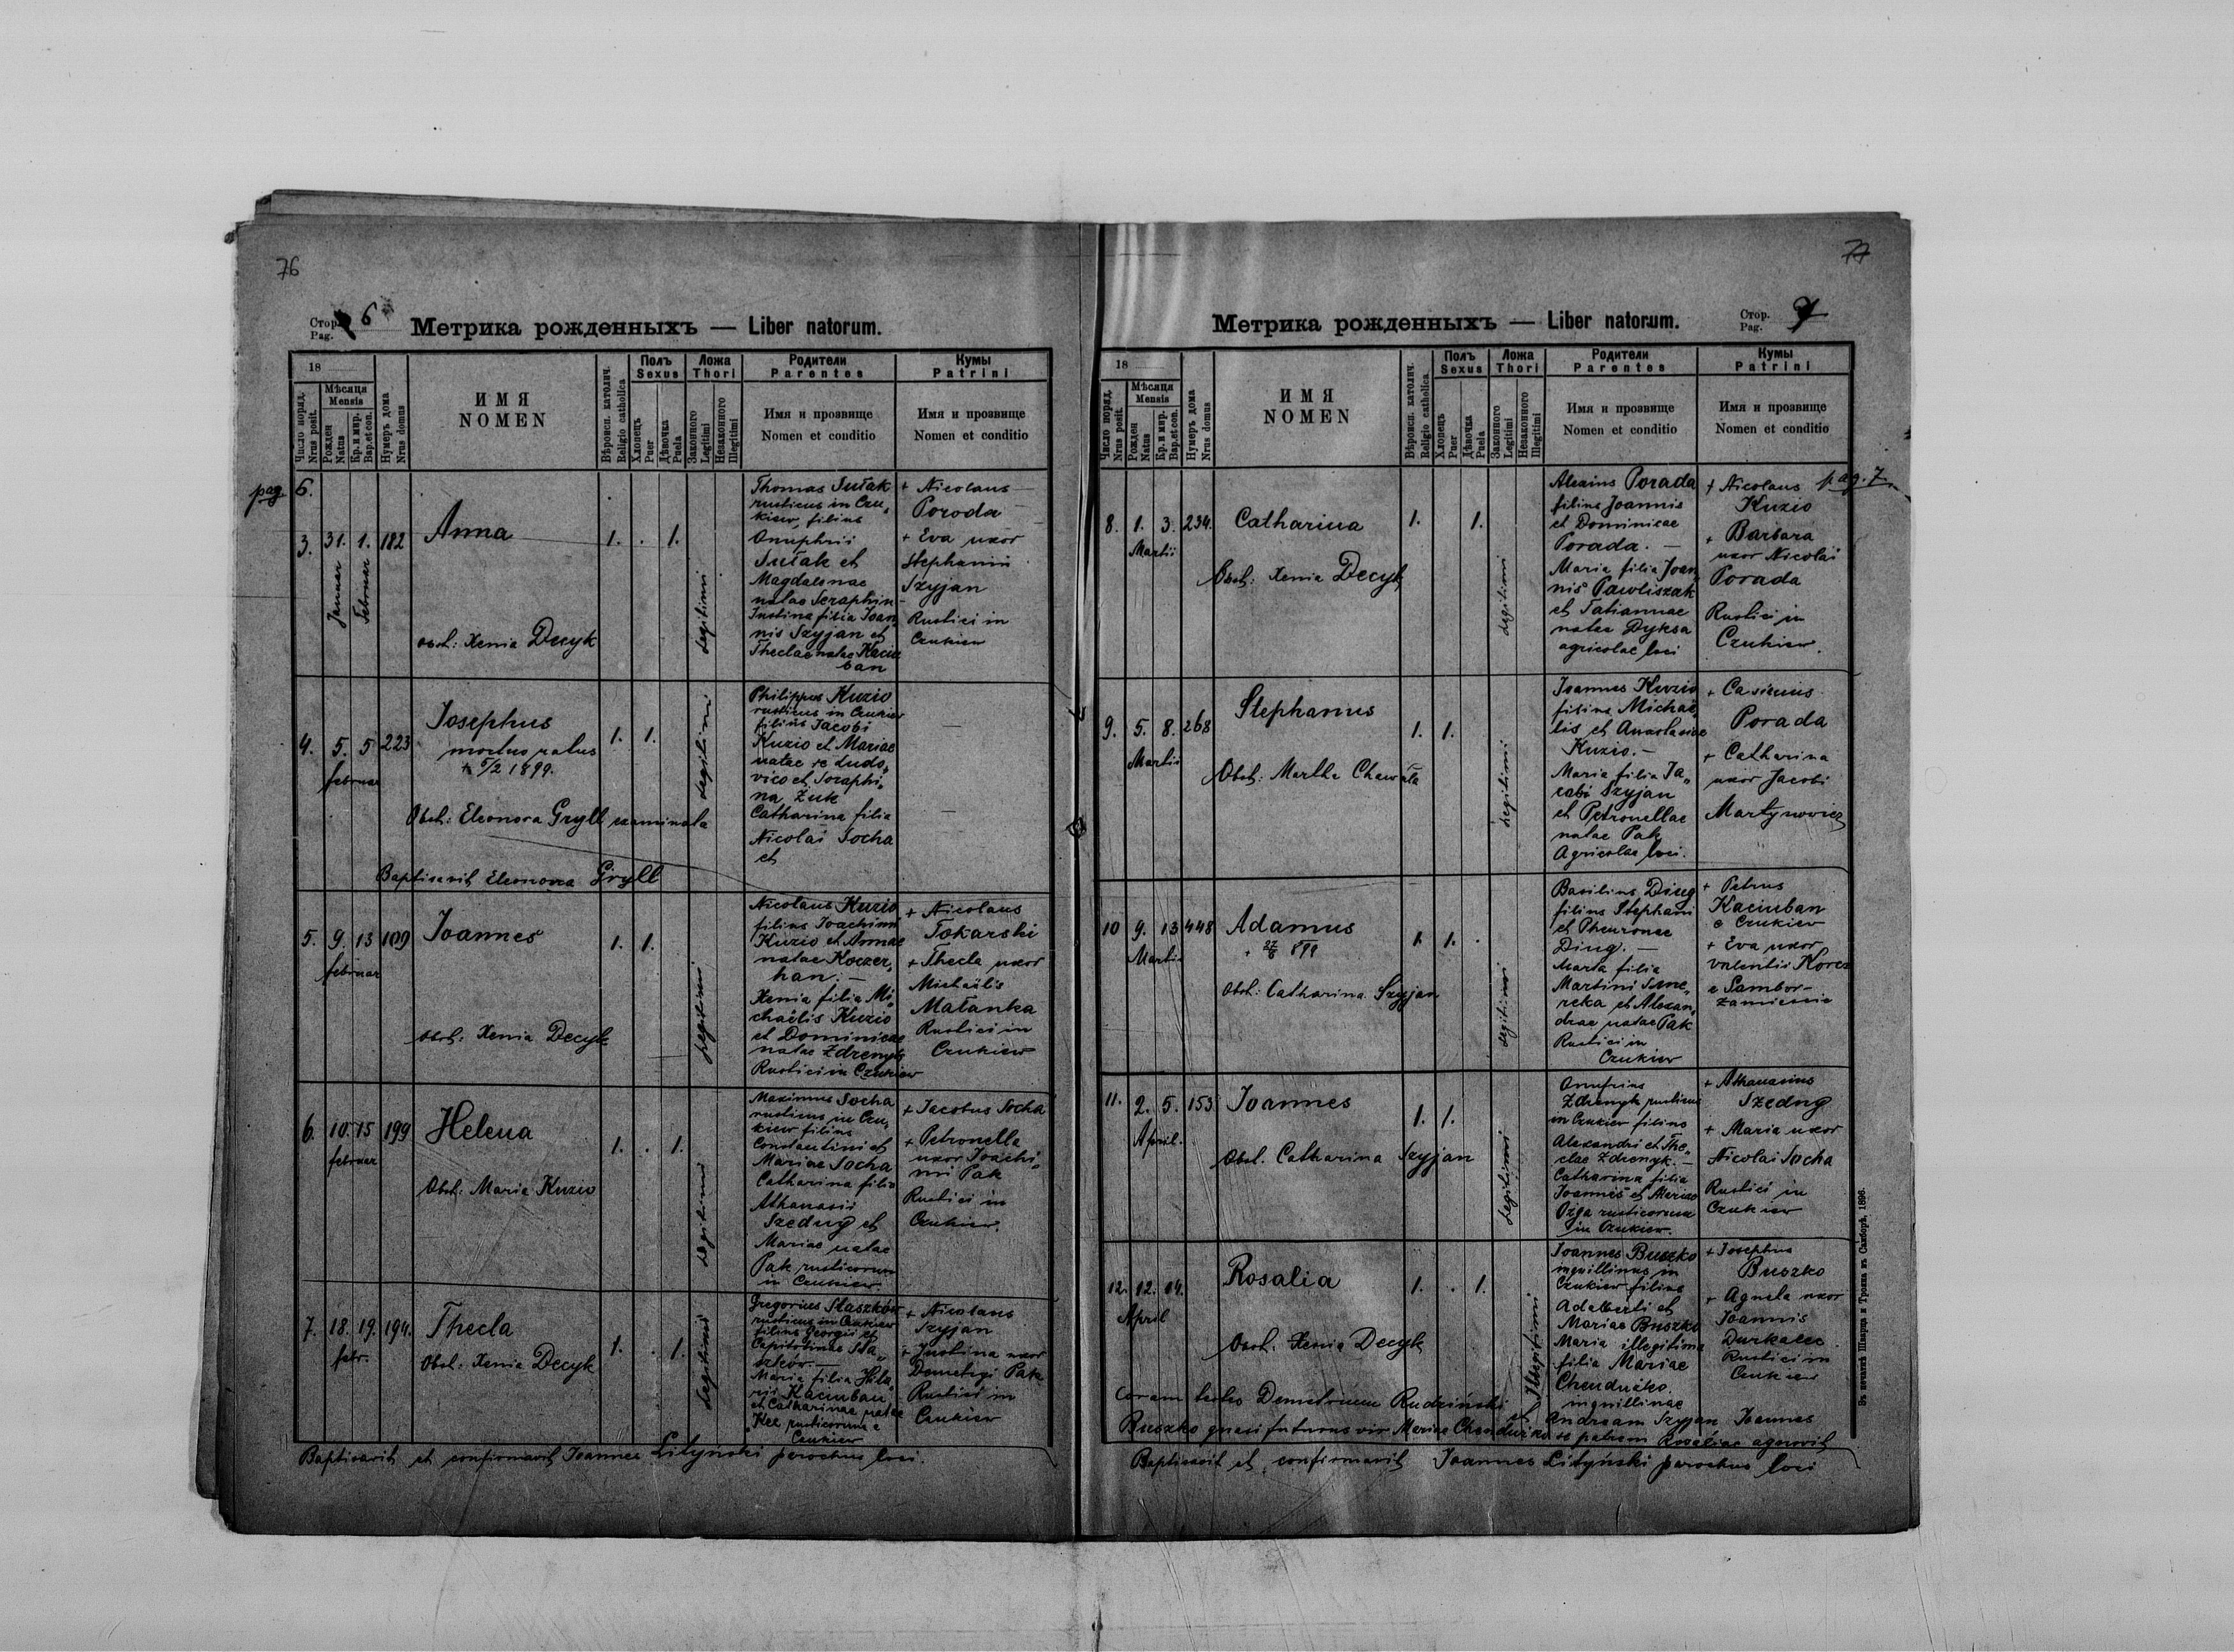 76
Стор. 6
Pag.
Метрика рожденныхъ — Liber natorum.
18
Число поряд.
Nrus posit.
Мѣсяця
Mensis
Рожден
Natus
Кр. и мир.
Bap. et con.
Нумеръ дома
Nrus domus
ИМЯ
NOMEN
Вѣроисп. католич.
Religio catholica
Полъ
Sexus
Хлопець
Puer
Дѣвочка
Puela
Ложа
Thori
Законного
Legitimi
Незаконного
Illegitimi
Родители
Parentes
Имя и прозвище
Nomen et conditio
Кумы
Patrini
Имя и прозвище
Nomen et conditio
pag 6.
3. 31. 1. 182
Januar Februar
Anna
obst: Xenia Decyk
1. . 1.
Legitimi
Thomas Sułak
rusticus in Czu„
kiew, filius
Onuphrii
Sułak et
Magdalenae
natae Seraphin
Justina filia Joan
nis Szyjan et
Theclae natae Kaciu
ban
+ Nicolaus
Poroda
+ Eva uxor
Stephanii
Szyjan
Rustici in
Czukiew
4. 5. 5 223
februar
Josephus
mortuo natus
+ 5/2 1899.
Obst: Eleonora Gryll examinata
Baptisavit Eleonora Gryll
1. 1.
Legitimi
Philippus Kuzio
rusticus in Czukiew
filius Jacobi
Kuzio et Mariae
natae re Ludo„
vico et Seraphi„
na Żuk
Catharina filia
Nicolai Socha
et
5. 9. 13 109
februar
Joannes
obst: Xenia Decyk
1. 1.
Legitimi
Nicolaus Kuzio
filius Joachimi
Kuzio et Annae
natae Koczer„
han. —
Xenia filia Mi„
chaëlis Kuzio
et Dominicae
natae Zdrenyk
Rustici in Czukiew
+ Nicolaus
Tokarski
+ Thecla uxor
Michaëlis
Małanka
Rustici in
Czukiew
6. 10. 15 199
februar
Helena
Obst: Maria Kuzio
1. . 1.
Legitimi
Maximus Socha
rusticus in Czu„
kiew filius
Constantini et
Mariae Socha
Catharina filia
Athanasii
Szedny et
Mariae natae
Pak rusticorum
in Czukiew.
+ Jacobus Socha
+ Petronella
uxor Joachi„
mi Pak
Rustici in
Czukiew.
7. 18. 19. 194.
febr.
Thecla
Obst: Xenia Decyk
1. . 1.
Legitimi
Gregorius Staszków
rusticus in Czukiew
filius Georgii et
Capitolinae Sta„
szków. —
Maria filia Hila„
rii Kaciuban
et Catharinae natae
rusticorum e
Czukiew
+ Nicolaus
Szyjan
+ Justina uxor
Demetryi Pak
Rustici in
Czukiew
Baptisavit et confirmavit Joannes Lityński parochus loci.
77
Метрика рожденныхъ — Liber natorum.
Стор. 7
Pag.
18
Число поряд.
Nrus posit.
Мѣсяця
Mensis
Рожден
Natus
Кр. и мир.
Bap. et con.
Нумеръ дома
Nrus domus
ИМЯ
NOMEN
Вѣроисп. католич.
Religio catholica
Полъ
Sexus
Хлопець
Puer
Дѣвочка
Puela
Ложа
Thori
Законного
Legitimi
Незаконного
Illegitimi
Родители
Parentes
Имя и прозвище
Nomen et conditio
Кумы
Patrini
Имя и прозвище
Nomen et conditio
pag. 7
8. 1. 3. 234.
Martii
Catharina
Obst: Xenia Decyk
1. 1.
Legitimi
Alexius Porada
filius Joannis
et Dominicae
Porada. —
Maria filia Joan
nis Pawliszak
et Tatiannae
natae Dyksa
agricolae loci
+ Nicolaus
Kuzio
+ Barbara
uxor Nicolai
Porada
Rustici in
Czukiew.
9. 5. 8. 268
Martii
Stephanus
Obst: Martha Chawała
1. 1.
Legitimi
Joannes Kuzio
filius Michae„
lis et Anastasiae
Kuzio. —
Maria filia Ja„
cobi Szyjan
et Petronellae
natae Pak
Agricolae loci.
+ Casimius
Porada
+ Catharina
uxor Jacobi
Martynowicz
10 9. 13 448
Martii
Adamus
+ 27/6 899
Obst: Catharina Szyjan
1. 1. .
Legitimi
Basilius Ding
filius Stephani
et Pheuronae
Ding. —
Maria filia
Martini Seme„
reka et Alexan„
drae natae Pak
Rustici in
Czukiew
+ Petrus
Kaciuban
e Czukiew
+ Eva uxor
Valentii Korcz
e Sambor-
Zamiescie
11. 2. 5. 153
April.
Joannes
Obst. Catharina Szyjan
1. 1.
Legitimi
Onufrius
Zdrenyk rusticus
in Czukiew filius
Alexandri et The„
clae Zdrenyk. —
Catharina filia
Joannes et Mariae
Ożga rusticorum
in Czukiew.
+ Athanasius
Szedny
+ Maria uxor
Nicolai Socha
Rustici in
Czukiew
12. 12. 14.
April
Rosalia
Obst. Xenia Decyk
1. . 1.
Illegitimi
Joannes Buszko
inquillinus in
Czukiew filius
Adalberti et
Mariae Buszko
Maria illegitima
filia Mariae
Chenduźko.
inquillinae
+ Josephus
Buszko
+ Agnela uxor
Joannis
Durkalec
Rustici in
Czukiew
Coram testes Demetrium Rudziński et Andream Szyjan Joannes
Buszko quasi futurus vir Mariae Chenduźko se patrem Rosaliae agnovit
Baptisavit et confirmavit Joannes Lityński parochus loci
Въ печатнѣ Шварца и Трояна въ Самборѣ, 1896.